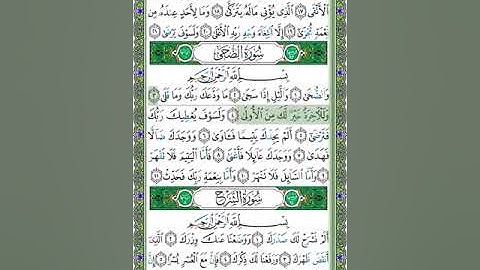 الْأَتْقَى ١٧ الَّذِي يُؤْتِي مَالَهُ يَتَزَكَّى ١٨ وَمَا لِأَحَدٍ عِندَهُ مِن
نِّعْمَةٍ تُجْزَى ١٩ إِلَّا ابْتِغَاءَ وَجْهِ رَبِّهِ الْأَعْلَى ٢٠ وَلَسَوْفَ يَرْضَى ٢١
سُورَةُ الضُّحَى
بِسْمِ اللَّهِ الرَّحْمَٰنِ الرَّحِيمِ
وَالضُّحَى ١ وَاللَّيْلِ إِذَا سَجَى ٢ مَا وَدَّعَكَ رَبُّكَ وَمَا قَلَى ٣
وَلَلْآخِرَةُ خَيْرٌ لَّكَ مِنَ الْأُولَى ٤ وَلَسَوْفَ يُعْطِيكَ رَبُّكَ
فَتَرْضَى ٥ أَلَمْ يَجِدْكَ يَتِيمًا فَآوَى ٦ وَوَجَدَكَ ضَالًّا
فَهَدَى ٧ وَوَجَدَكَ عَائِلًا فَأَغْنَى ٨ فَأَمَّا الْيَتِيمَ فَلَا تَقْهَرْ
٩ وَأَمَّا السَّائِلَ فَلَا تَنْهَرْ ١٠ وَأَمَّا بِنِعْمَةِ رَبِّكَ فَحَدِّثْ ١١
سُورَةُ الشَّرْحِ
بِسْمِ اللَّهِ الرَّحْمَٰنِ الرَّحِيمِ
أَلَمْ نَشْرَحْ لَكَ صَدْرَكَ ١ وَوَضَعْنَا عَنكَ وِزْرَكَ ٢ الَّذِي
أَنقَضَ ظَهْرَكَ ٣ وَرَفَعْنَا لَكَ ذِكْرَكَ ٤ فَإِنَّ مَعَ الْعُسْرِ يُسْرًا ٥ إِنَّ